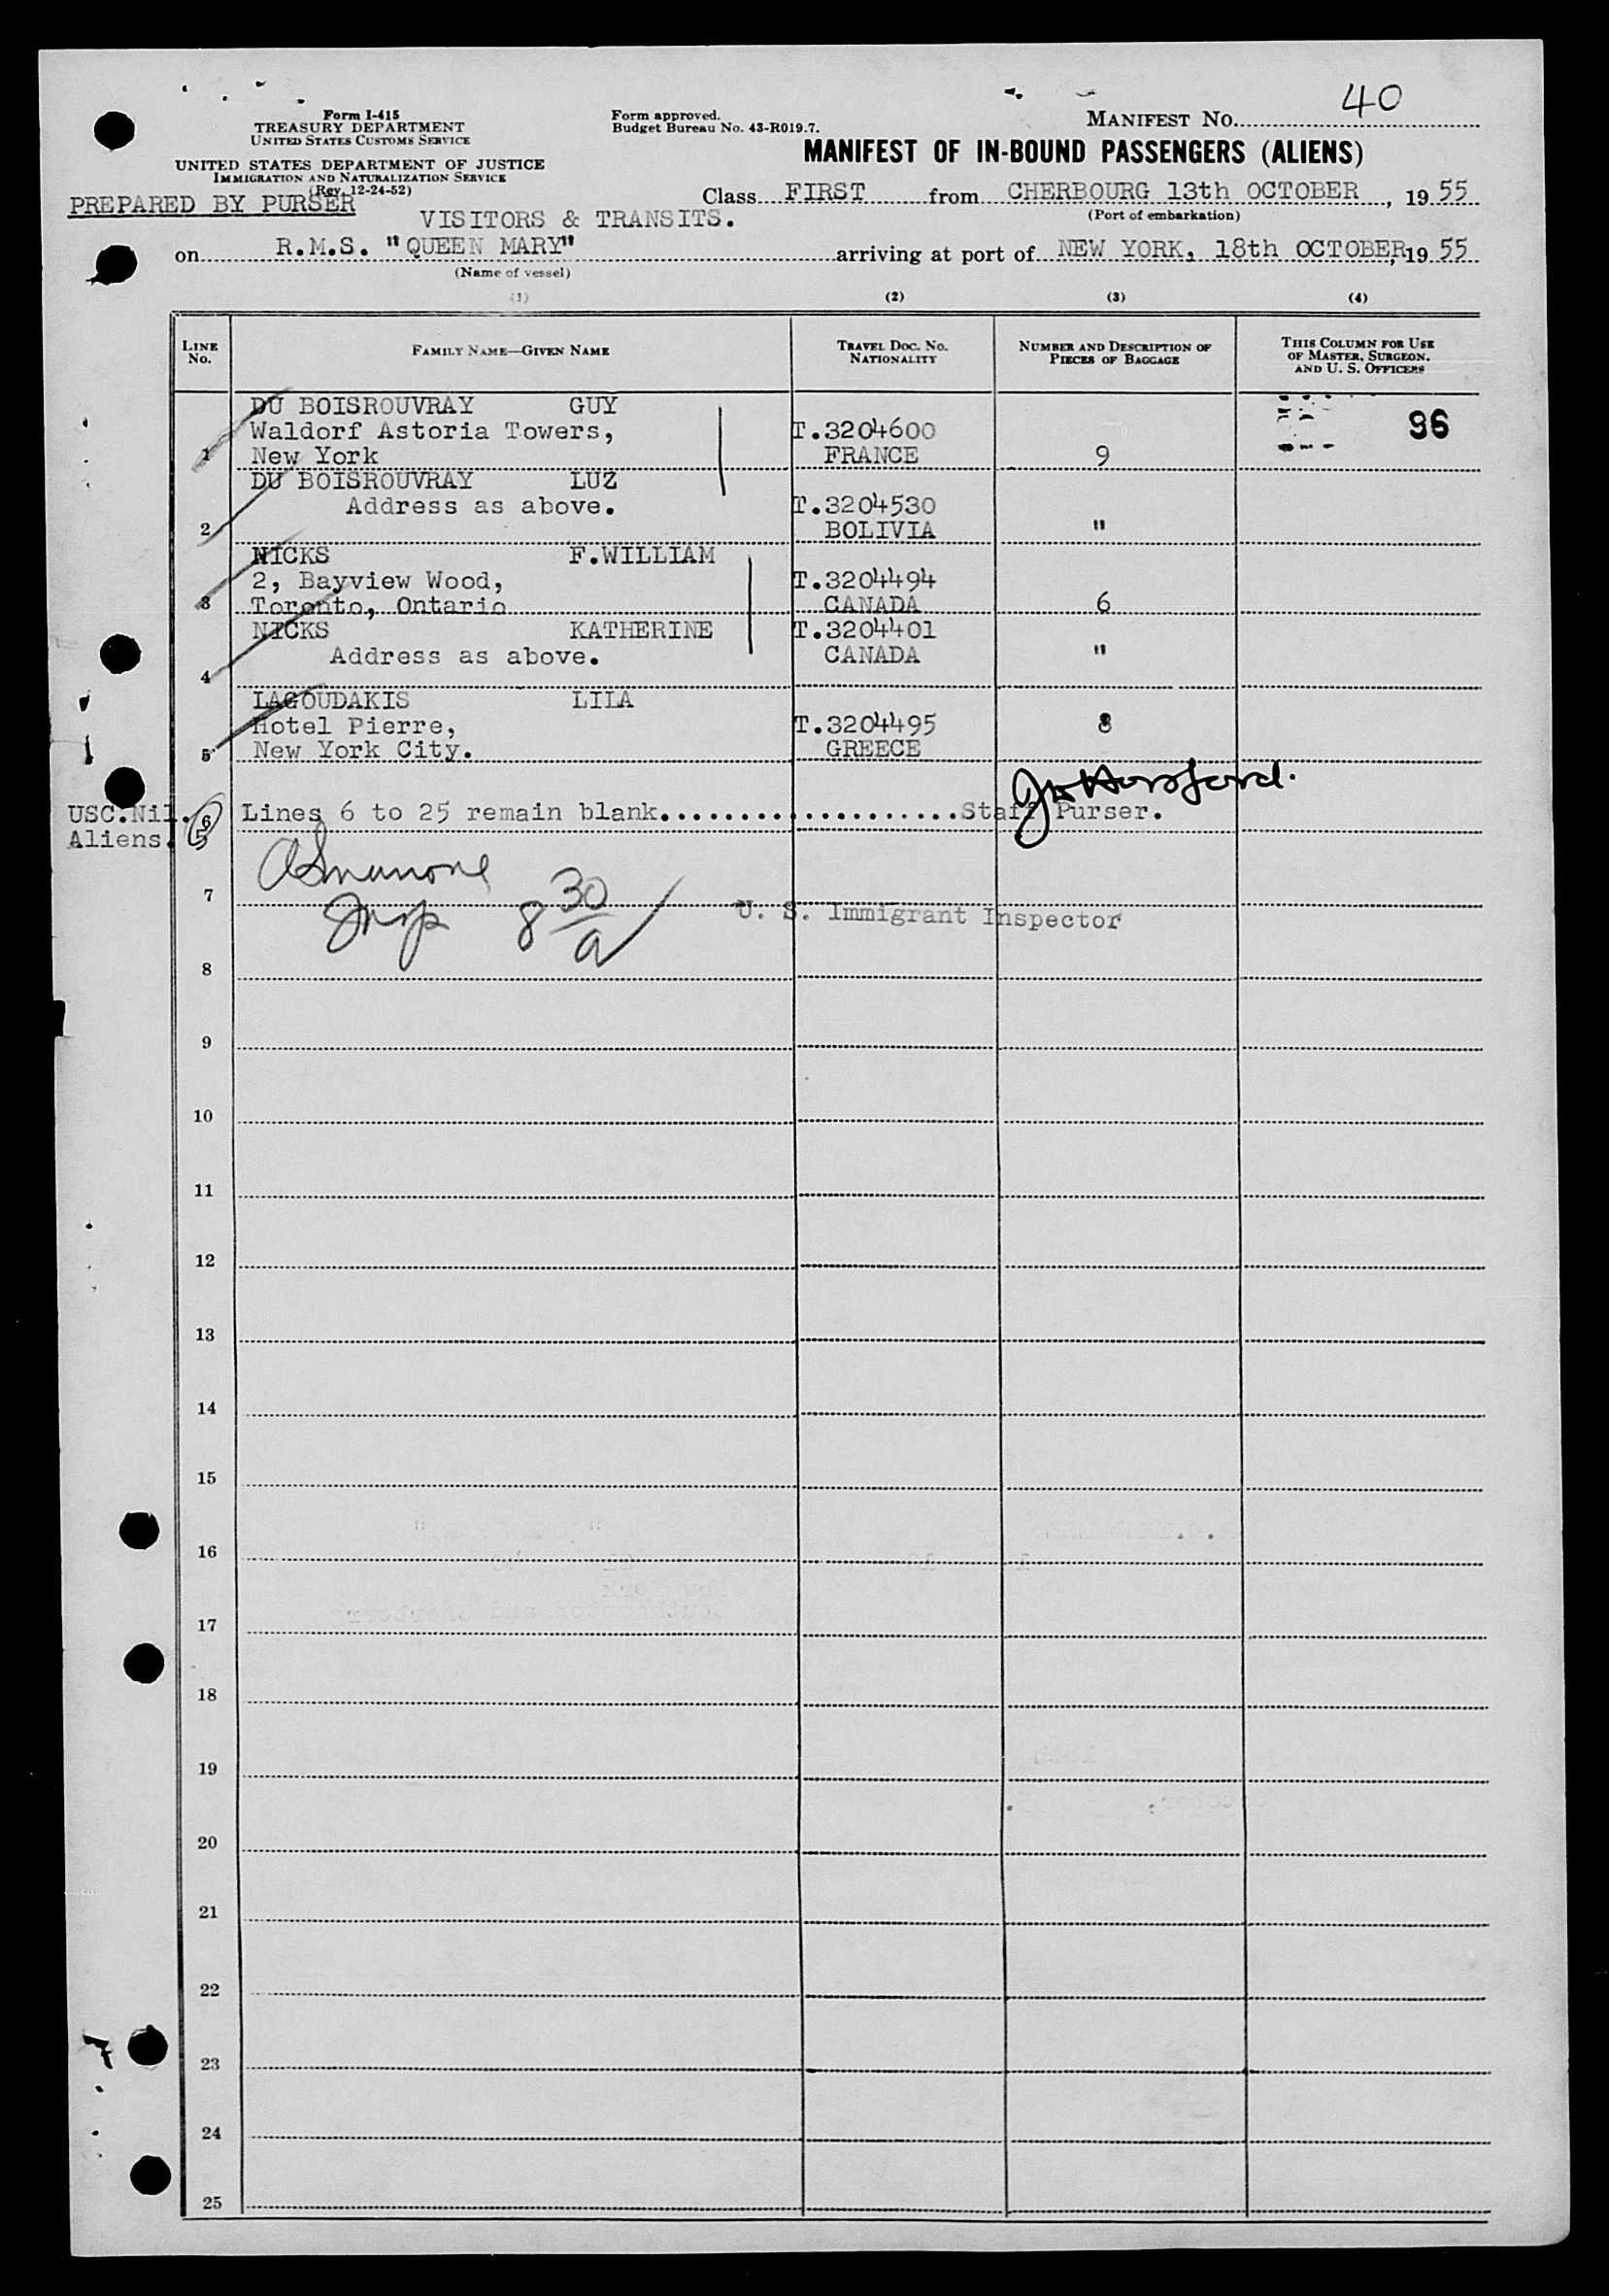 Form I-415
TREASURY DEPARTMENT
UNITED STATES CUSTOMS SERVICE
UNITED STATES DEPARTMENT OF JUSTICE
IMMIGRATION AND NATURALIZATION SERVICE
(Rev. 12-24-52)
PREPARED BY PURSER
Form approved.
Budget Bureau No. 43-R019.7.
MANIFEST NO. 40
MANIFEST OF IN-BOUND PASSENGERS (ALIENS)
Class FIRST from CHERBOURG 13th OCTOBER, 1955
(Port of embarkation)
VISITORS & TRANSITS.
on R.M.S. "QUEEN MARY" arriving at port of NEW YORK, 18th OCTOBER, 1955
(Name of vessel)
(1) (2) (3) (4)
LINE NO. FAMILY NAME—GIVEN NAME TRAVEL DOC. NO. NATIONALITY NUMBER AND DESCRIPTION OF PIECES OF BAGGAGE THIS COLUMN FOR USE OF MASTER, SURGEON, AND U. S. OFFICERS
DU BOISROUVRAY GUY
Waldorf Astoria Towers, T.3204600 96
1 New York FRANCE 9
DU BOISROUVRAY LUZ
Address as above. T.3204530
2 BOLIVIA "
NICKS F.WILLIAM
2, Bayview Wood, T.3204494
3 Toronto, Ontario CANADA 6
NICKS KATHERINE T.3204401
Address as above. CANADA "
4
LAGOUDAKIS LILA
Hotel Pierre, T.3204495 8
5 New York City. GREECE
USC.Nil. 6 Lines 6 to 25 remain blank....................Staff Purser.
Aliens. 5
7 Insp 8 30/a U. S. Immigrant Inspector
8
9
10
11
12
13
14
15
16
17
18
19
20
21
22
23
24
25